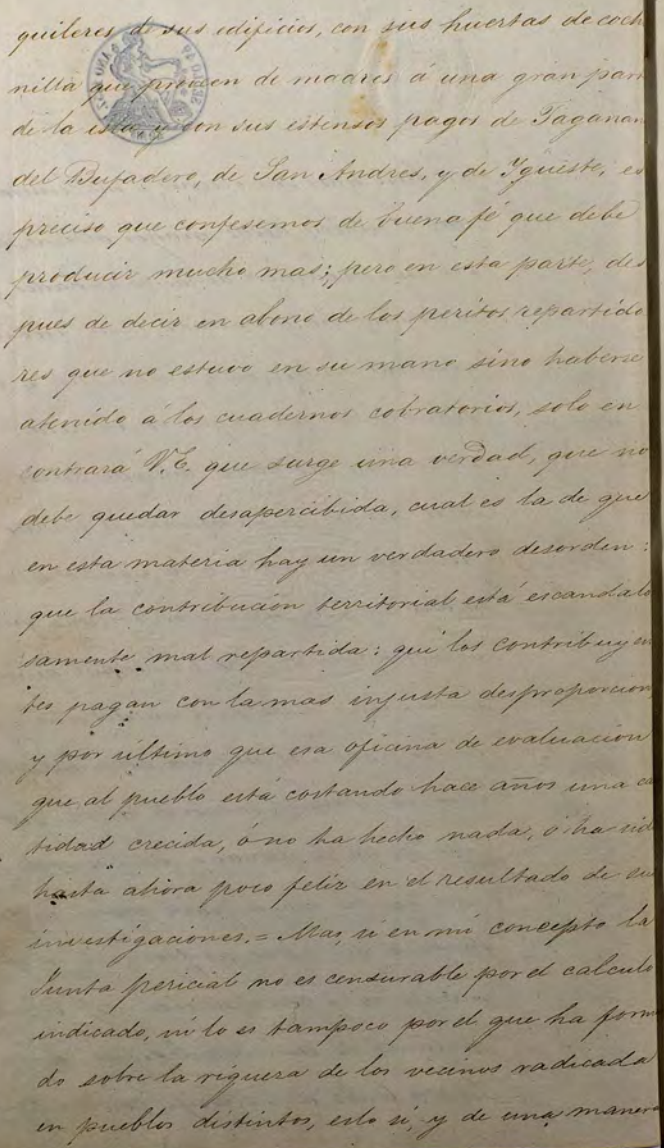 quileres de sus edificios, con sus huertas de coch
nilla que proveen de madres á una gran par
de la isla y con sus estensos pagos de Taganan
del Bufadero, de San Andres, y de Ygueste, es
preciso que confesemos de buena fé que debe
producir mucho mas; pero en esta parte, des
pues de decir en abono de los peritos repartido
res que no estuvo en su mano sino haberse
atenido á los cuadernos cobratorios, solo en
contrará V.E. que surge una verdad, que no
debe quedar desapercibida, cual es la de que
en esta materia hay un verdadero desorden:
que la contribucion territorial está escandalo
samente mal repartida: que los contribuyen
tes pagan con la mas injusta desproporcion,
y por último que esa oficina de evaluacion
que al pueblo está costando hace años una ca
tidad crecida, ó no ha hecho nada, ó ha sid
hasta ahora poco feliz en el resultado de su
investigaciones. = Mas, si en mi concepto la
Junta pericial no es censurable por el calculo
indicado, ni lo es tampoco por el que ha form
do sobre la riqueza de los vecinos radicada
en pueblos distintos, eslo si, y de una manera